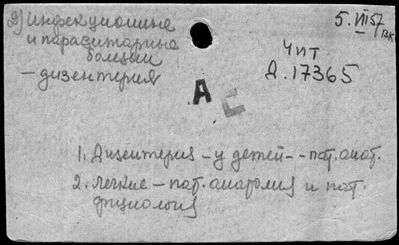 2) инфекционные
и паразитарные
болезни
— дизентерия
5. VIII 57
ВК
Чит
Д. 17365
А С
1. Дизентерия – у детей - - пат. анат.
2. Легкие – пат. анатомия и пат.
физиология